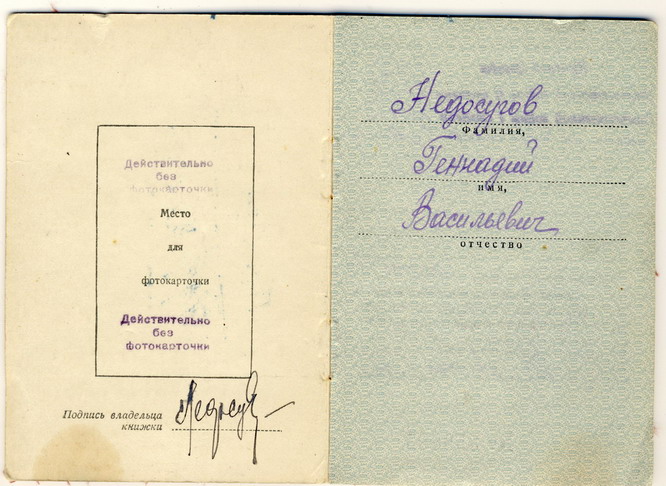 Действительно
без
фотокарточки
Место
для
фотокарточки
Действительно
без
фотокарточки
Подпись владельца
книжки
Недосугов
Фамилия,
Геннадий
имя,
Васильевич
отчество